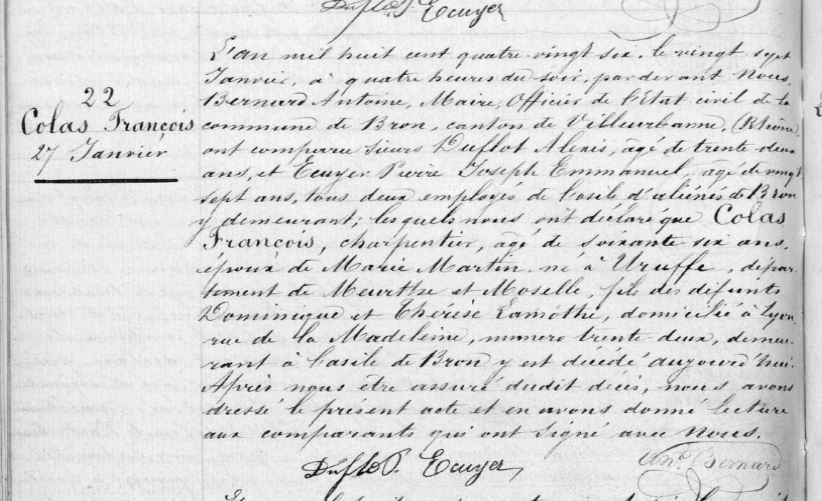 Duflot Ecuyer
22
Colas François
27 Janvier
L'an mil huit cent quatre vingt six, le vingt sept
Janvier, à quatre heures du soir, par devant Nous,
Bernard Antoine, Maire, Officier de l'Etat civil de la
commune de Bron, canton de Villeurbanne, (Rhône)
ont comparu sieurs Duflot Alexis, agé de trente deux
ans, et Ecuyer Pierre Joseph Emmanuel, agé de vingt
sept ans, tous deux employés de l'asile d'aliénés de Bron
y demeurant; lesquels nous ont déclaré que Colas
François, charpentier, agé de soixante six ans,
époux de Marie Martin, né à Uruffe, dépar-
tement de Meurthe et Moselle, fils des défunts
Dominique et Thérèse Lamothe, domicilié à Lyon,
rue de la Madeleine, numero trente deux, demeu-
rant à l'asile de Bron y est decédé aujourd'hui.
Après nous être assuré dudit décès, nous avons
dressé le présent acte et en avons donné lecture
aux comparants qui ont signé avec Nous.
Duflot Ecuyer Ant. Bernard